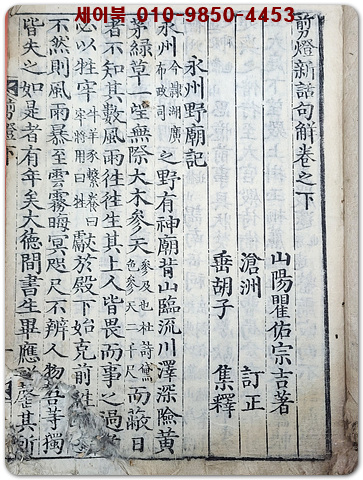 세이북 010-9850-4453
剪燈新話句解卷之下
山陽瞿佑宗吉著
滄洲 訂正
垂胡子 集釋
永州野廟記
永州今隷湖廣布政司之野有神廟背山臨流川澤深險黃
茅綠草一望無際大木參天參及也杜詩黛色參天二千尺而蔽日
者不知其數風雨往往生其上人皆畏而事之過
必以牲牢牛羊豕繫養曰牢將用曰牲獻於殿下始克前往
不然則風雨暴至雲霧晦冥咫尺不辨人物
皆失之如是者有年矣大德間書生畢應其所